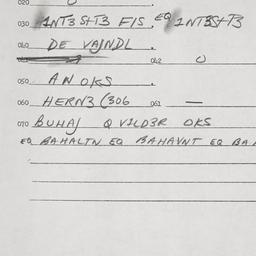 020
030 INT3St-T3 FIS, EQ INT3St-T3
040 DE VAJNDL.
042 O
050 AN OKS
060 HERN3 (306 061 —
070 BUHAJ Q VILD3R OKS
EQ BAHALTN EQ BAHAVNT EQ BA